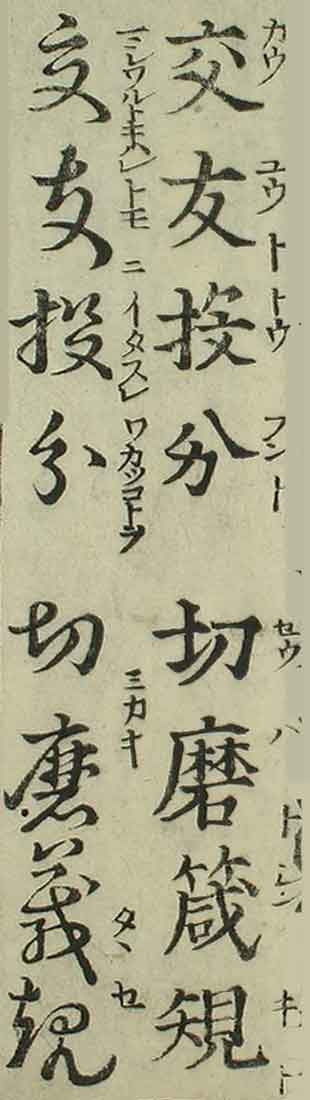 カウ ユウ ト トウ フント セウ バ ト シン キト
交友投分切磨箴規
マシワルトキハ トモ ニ イタス ワカツコトヲ ミカキ タヽセ
交友投分切磨箴規